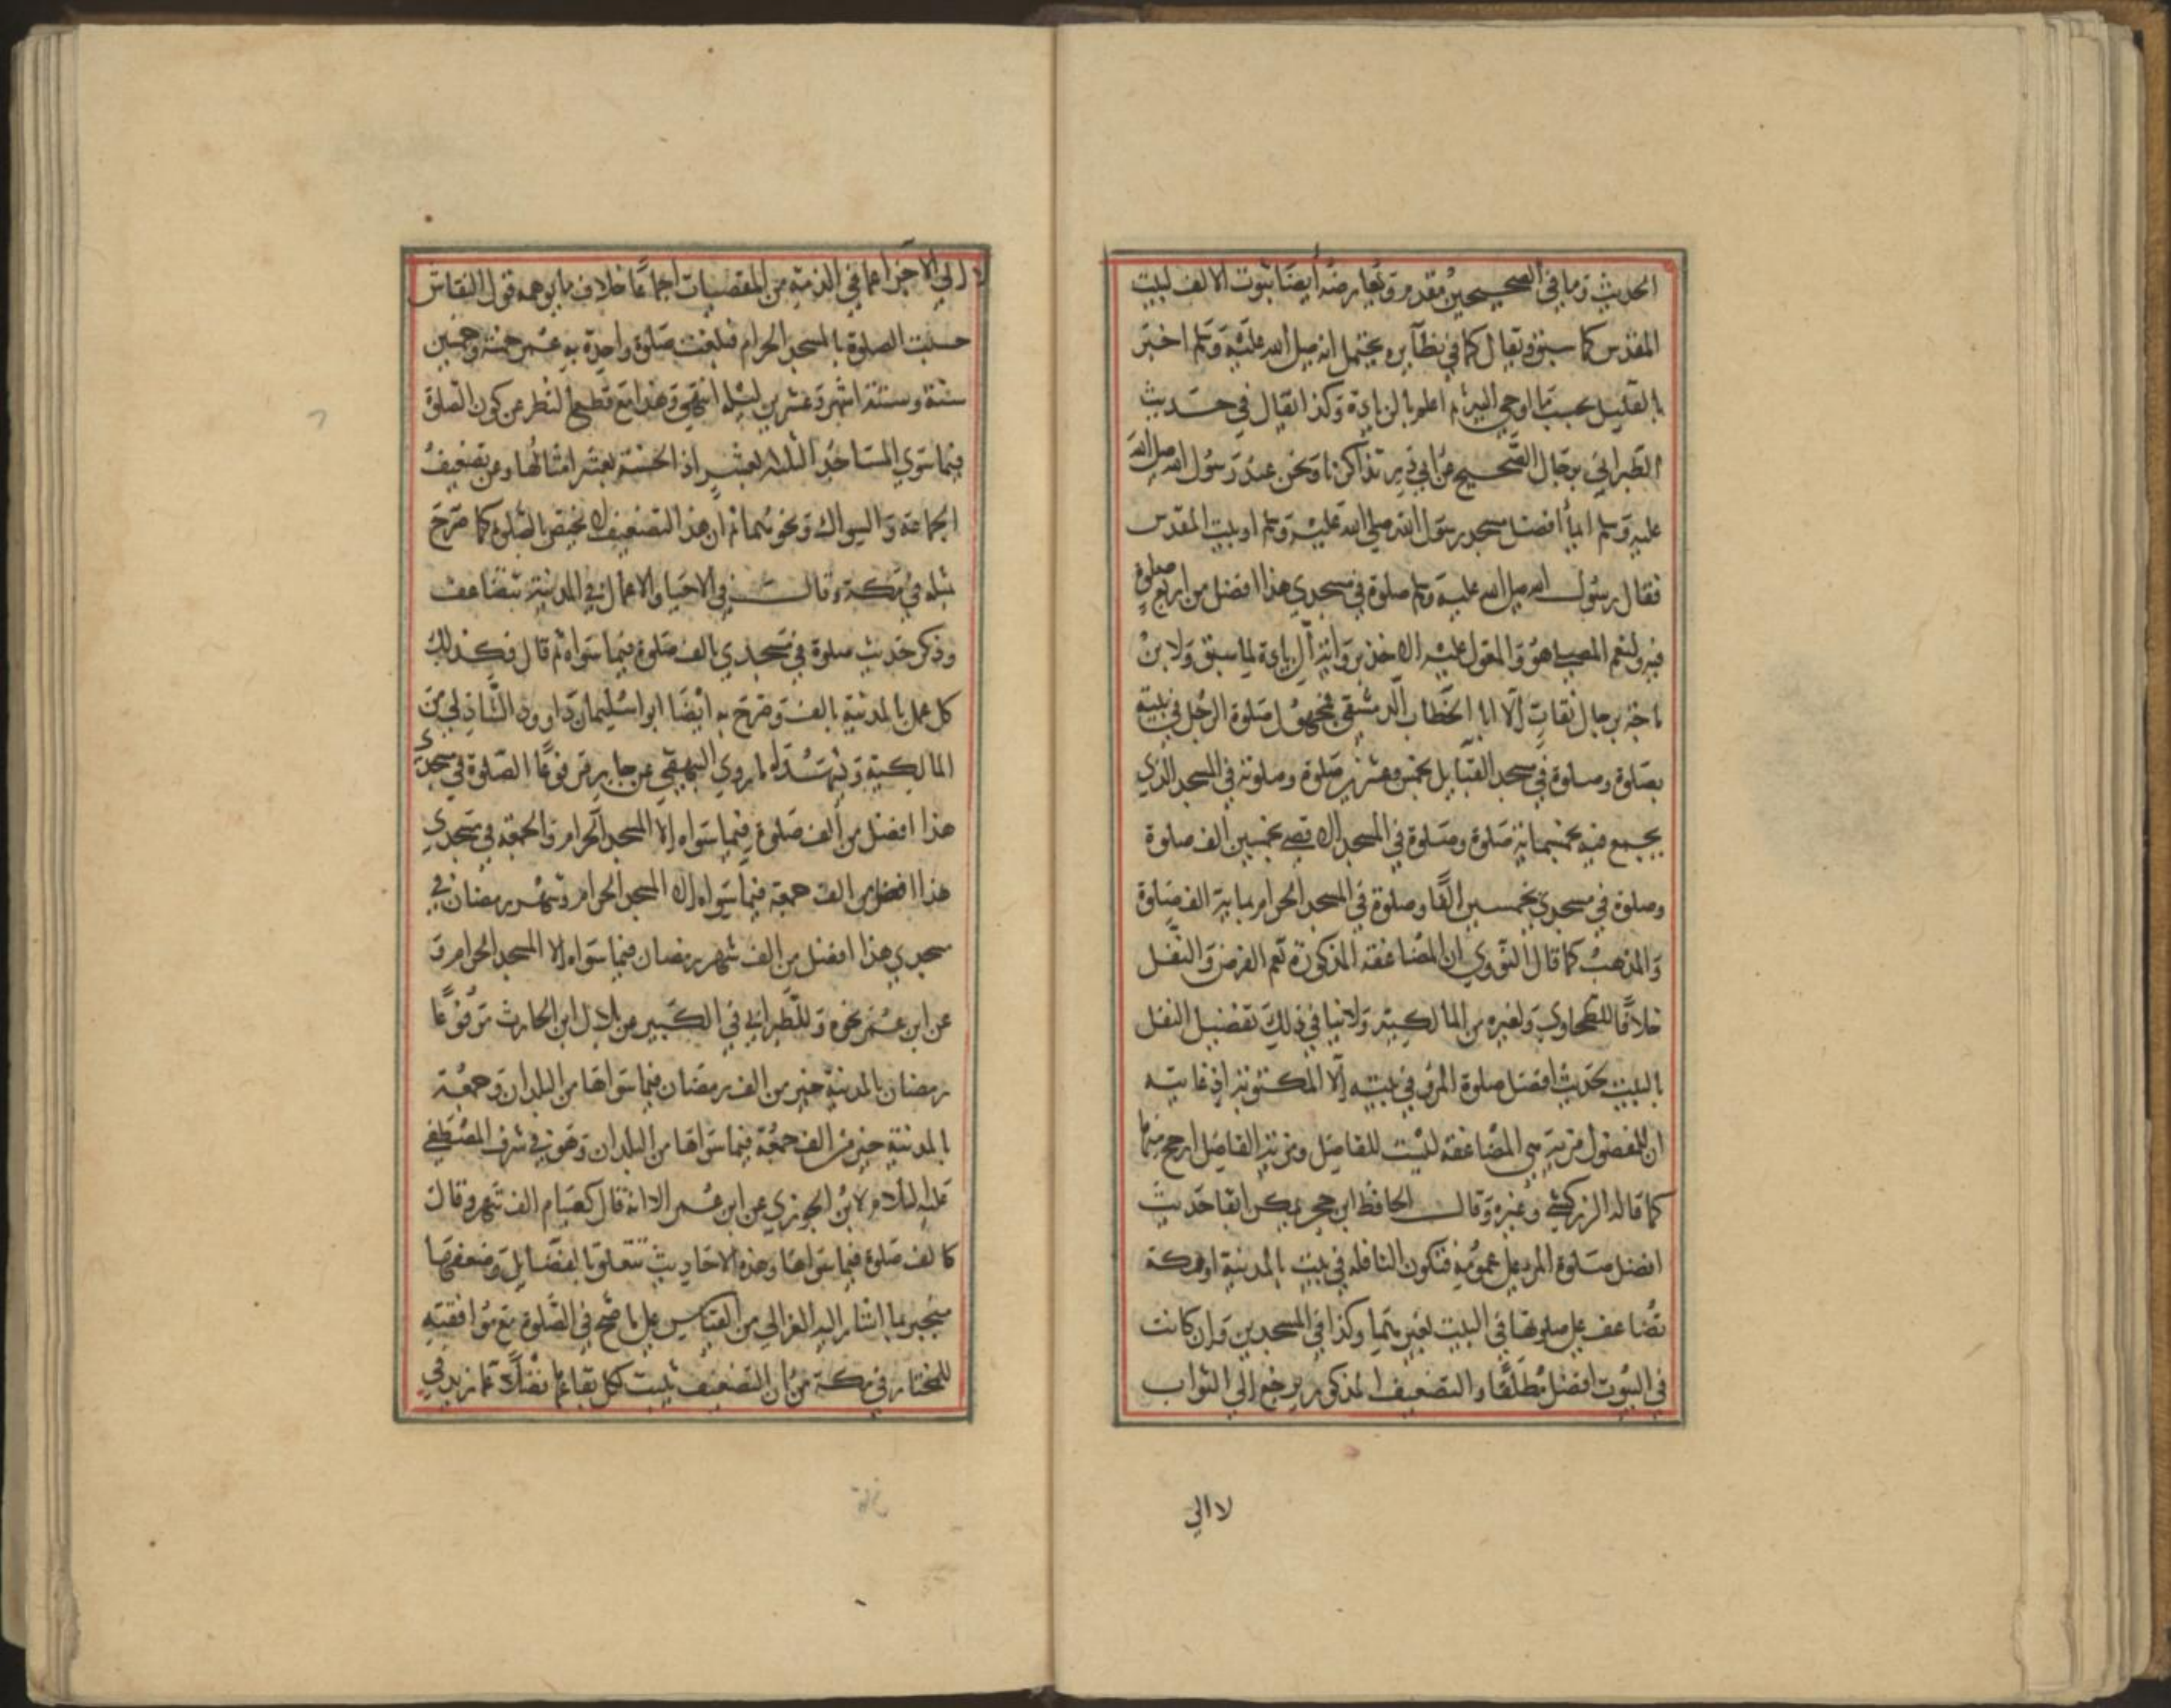 الحديث وما في الصحيحين مقدم ويعارضه أيضا ثبوت الالف لبيت
المقدس كما سبق ويقال كما في نظائره يحتمل انه صلى الله عليه وسلم اخبر
بالقليل بحسب ما اوحي اليه ثم اعلم بالزيادة وكذا يقال في حديث
الطبراني برجال الصحيح عن ابي ذر تذاكرنا ونحن عند رسول الله صلى الله
عليه وسلم ايما افضل مسجد رسول الله صلى الله عليه وسلم او بيت المقدس
فقال رسول الله صلى الله عليه وسلم صلوة في مسجدي هذا افضل من اربع صلوة
فيه ولنعم المصلى هو والمعول عليه الاخذ برواية الزيادة لما سبق ولابن
ماجة برجال ثقات الا ابا الخطاب الدمشقي فمجهول صلوة الرجل في بيته
بصلوة وصلوة في مسجد القبايل بخمس وعشرين صلوة وصلوته في المسجد الذي
يجمع فيه بخمسماية صلوة وصلوة في المسجد الاقصى بخمسين الف صلوة
وصلوة في مسجدي بخمسين الفا وصلوة في المسجد الحرام بماية الف صلوة
والمذهب كما قال النووي ان المضاعفة المذكورة تعم الفرض والنفل
خلافا للطحاوي ولغيره من المالكية ولا ينافي ذلك تفضيل النفل
بالبيت بحديث افضل صلوة المرء في بيته الا المكتوبة اذ غايته
ان للمفضول مزية هي المضاعفة ليست للفاضل ومزية الفاضل ارجح منها
كما قاله الزركشي وغيره وقال الحافظ ابن حجر يمكن ابقا حديث
افضل صلوة المرء على عمومه فتكون النافلة في بيت بالمدينة او مكة
تضاعف على صلوتها في البيت بغيرهما وكذا في المسجدين وان كانت
في البيوت افضل مطلقا والتضعيف المذكور يرجع الى الثواب
لا الي
لا الي الاجزا عما في الذمة من المقضيات اجماعا خلاف ما يوهمه قول النقاش
حسبت الصلوة بالمسجد الحرام فبلغت صلوة واحدة به عمر خمسة وخمسين
سنة وستة اشهر وعشرين ليلة انتهى وهذا مع قطع النظر عن كون الصلوة
فيما سوي المساجد الثلثة بعشر اذ الحسنة بعشر امثالها وعن تضعيف
الجماعة والسواك ونحوهما ثم ان هذا التضعيف لا يختص بالصلوة كما صرح
مثله في مكة وقال في الاحيا والاعمال في المدينة تتضاعف
وذكر حديث صلوة في مسجدي بالف صلوة فيما سواه ثم قال فكذلك
كل عمل بالمدينة بالف وصرح به ايضا ابو اسليمان داوود الشاذلي من
المالكية ويشهد له ما روي البيهقي عن جابر مرفوعا الصلوة في مسجدي
هذا افضل من الف صلوة فيما سواه الا المسجد الحرام والجمعة في مسجدي
هذا افضل من الف جمعة فيما سواه الا المسجد الحرام وشهر رمضان في
مسجدي هذا افضل من الف شهر رمضان فيما سواه الا المسجد الحرام و
عن ابن عمر نحوه وللطبراني في الكبير عن بلال ابن الحارث مرفوعا
رمضان بالمدينة خير من الف رمضان فيما سواها من البلدان وجمعة
بالمدينة خير من الف جمعة فيما سواها من البلدان وهو في شرف المصطفى
عليه السلام لابن الجوزي عن ابن عمر الا انه قال كصيام الف شهر وقال
كالف صلوة فيما سواها وهذه الاحاديث تتعلق بالفضائل وضعفها
منجبر بما اشار اليه الغزالي من القياس على ما صح في الصلوة مع موافقته
للمختار في مكة من ان التضعيف يثبت لكل بقاعها فضلا عما زيد في